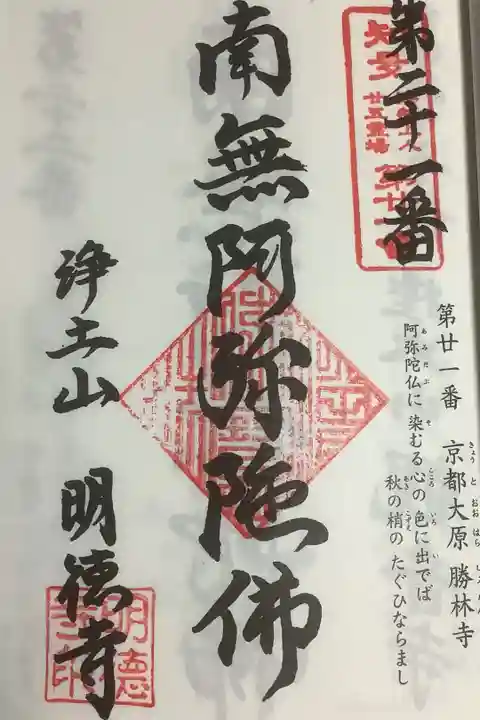 第二十一番
第廿一番 京都大原 勝林寺
阿弥陀仏に 染むる心の 色に出でば
秋の梢の たぐひならまし
南無阿弥陀佛
浄土山 明徳寺